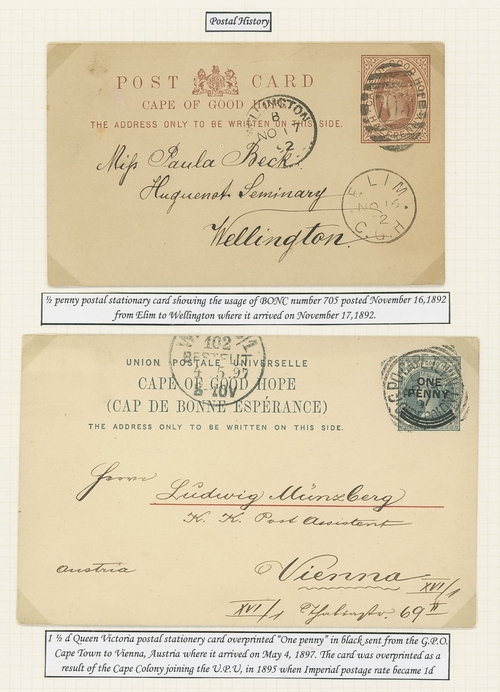 Postal History
POST CARD
CAPE OF GOOD HOPE
THE ADDRESS ONLY TO BE WRITTEN ON THIS SIDE.
WELLINGTON
8
NO 17
92
Miss Paula Beck.
Huguenot Seminary
Wellington.
ELIM.
NO 16
92
C.G.H
½ penny postal stationary card showing the usage of BONC number 705 posted November 16,1892
from Elim to Wellington where it arrived on November 17,1892.
102
BESTELLT
4.5.97
UNION POSTALE UNIVERSELLE
CAPE OF GOOD HOPE
(CAP DE BONNE ESPÉRANCE)
THE ADDRESS ONLY TO BE WRITTEN ON THIS SIDE.
ONE
PENNY
Herrn
Ludwig Münzberg
K. K. Post Assistent
Austria
Vienna
XVI/1
XVI/1 Thaliastr. 69
1 ½ d Queen Victoria postal stationery card overprinted "One penny" in black sent from the G.P.O.
Cape Town to Vienna, Austria where it arrived on May 4, 1897. The card was overprinted as a
result of the Cape Colony joining the U.P.U, in 1895 when Imperial postage rate became 1d